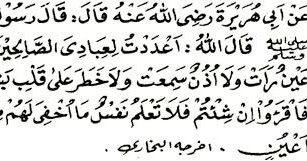 عَنْ أَبِي هُرَيْرَةَ رَضِيَ اللهُ عَنْهُ قَالَ: قَالَ رَسُولُ
صلى الله عليه وسلم قَالَ اللهُ: أَعْدَدْتُ لِعِبَادِي الصَّالِحِينَ
عَيْنٌ رَأَتْ وَلَا أُذُنٌ سَمِعَتْ وَلَا خَطَرَ عَلَى قَلْبِ
فَاقْرَءُوا إِنْ شِئْتُمْ فَلَا تَعْلَمُ نَفْسٌ مَا أُخْفِيَ لَهُمْ
أَعْيُنٍ. اخرجه البخاري.